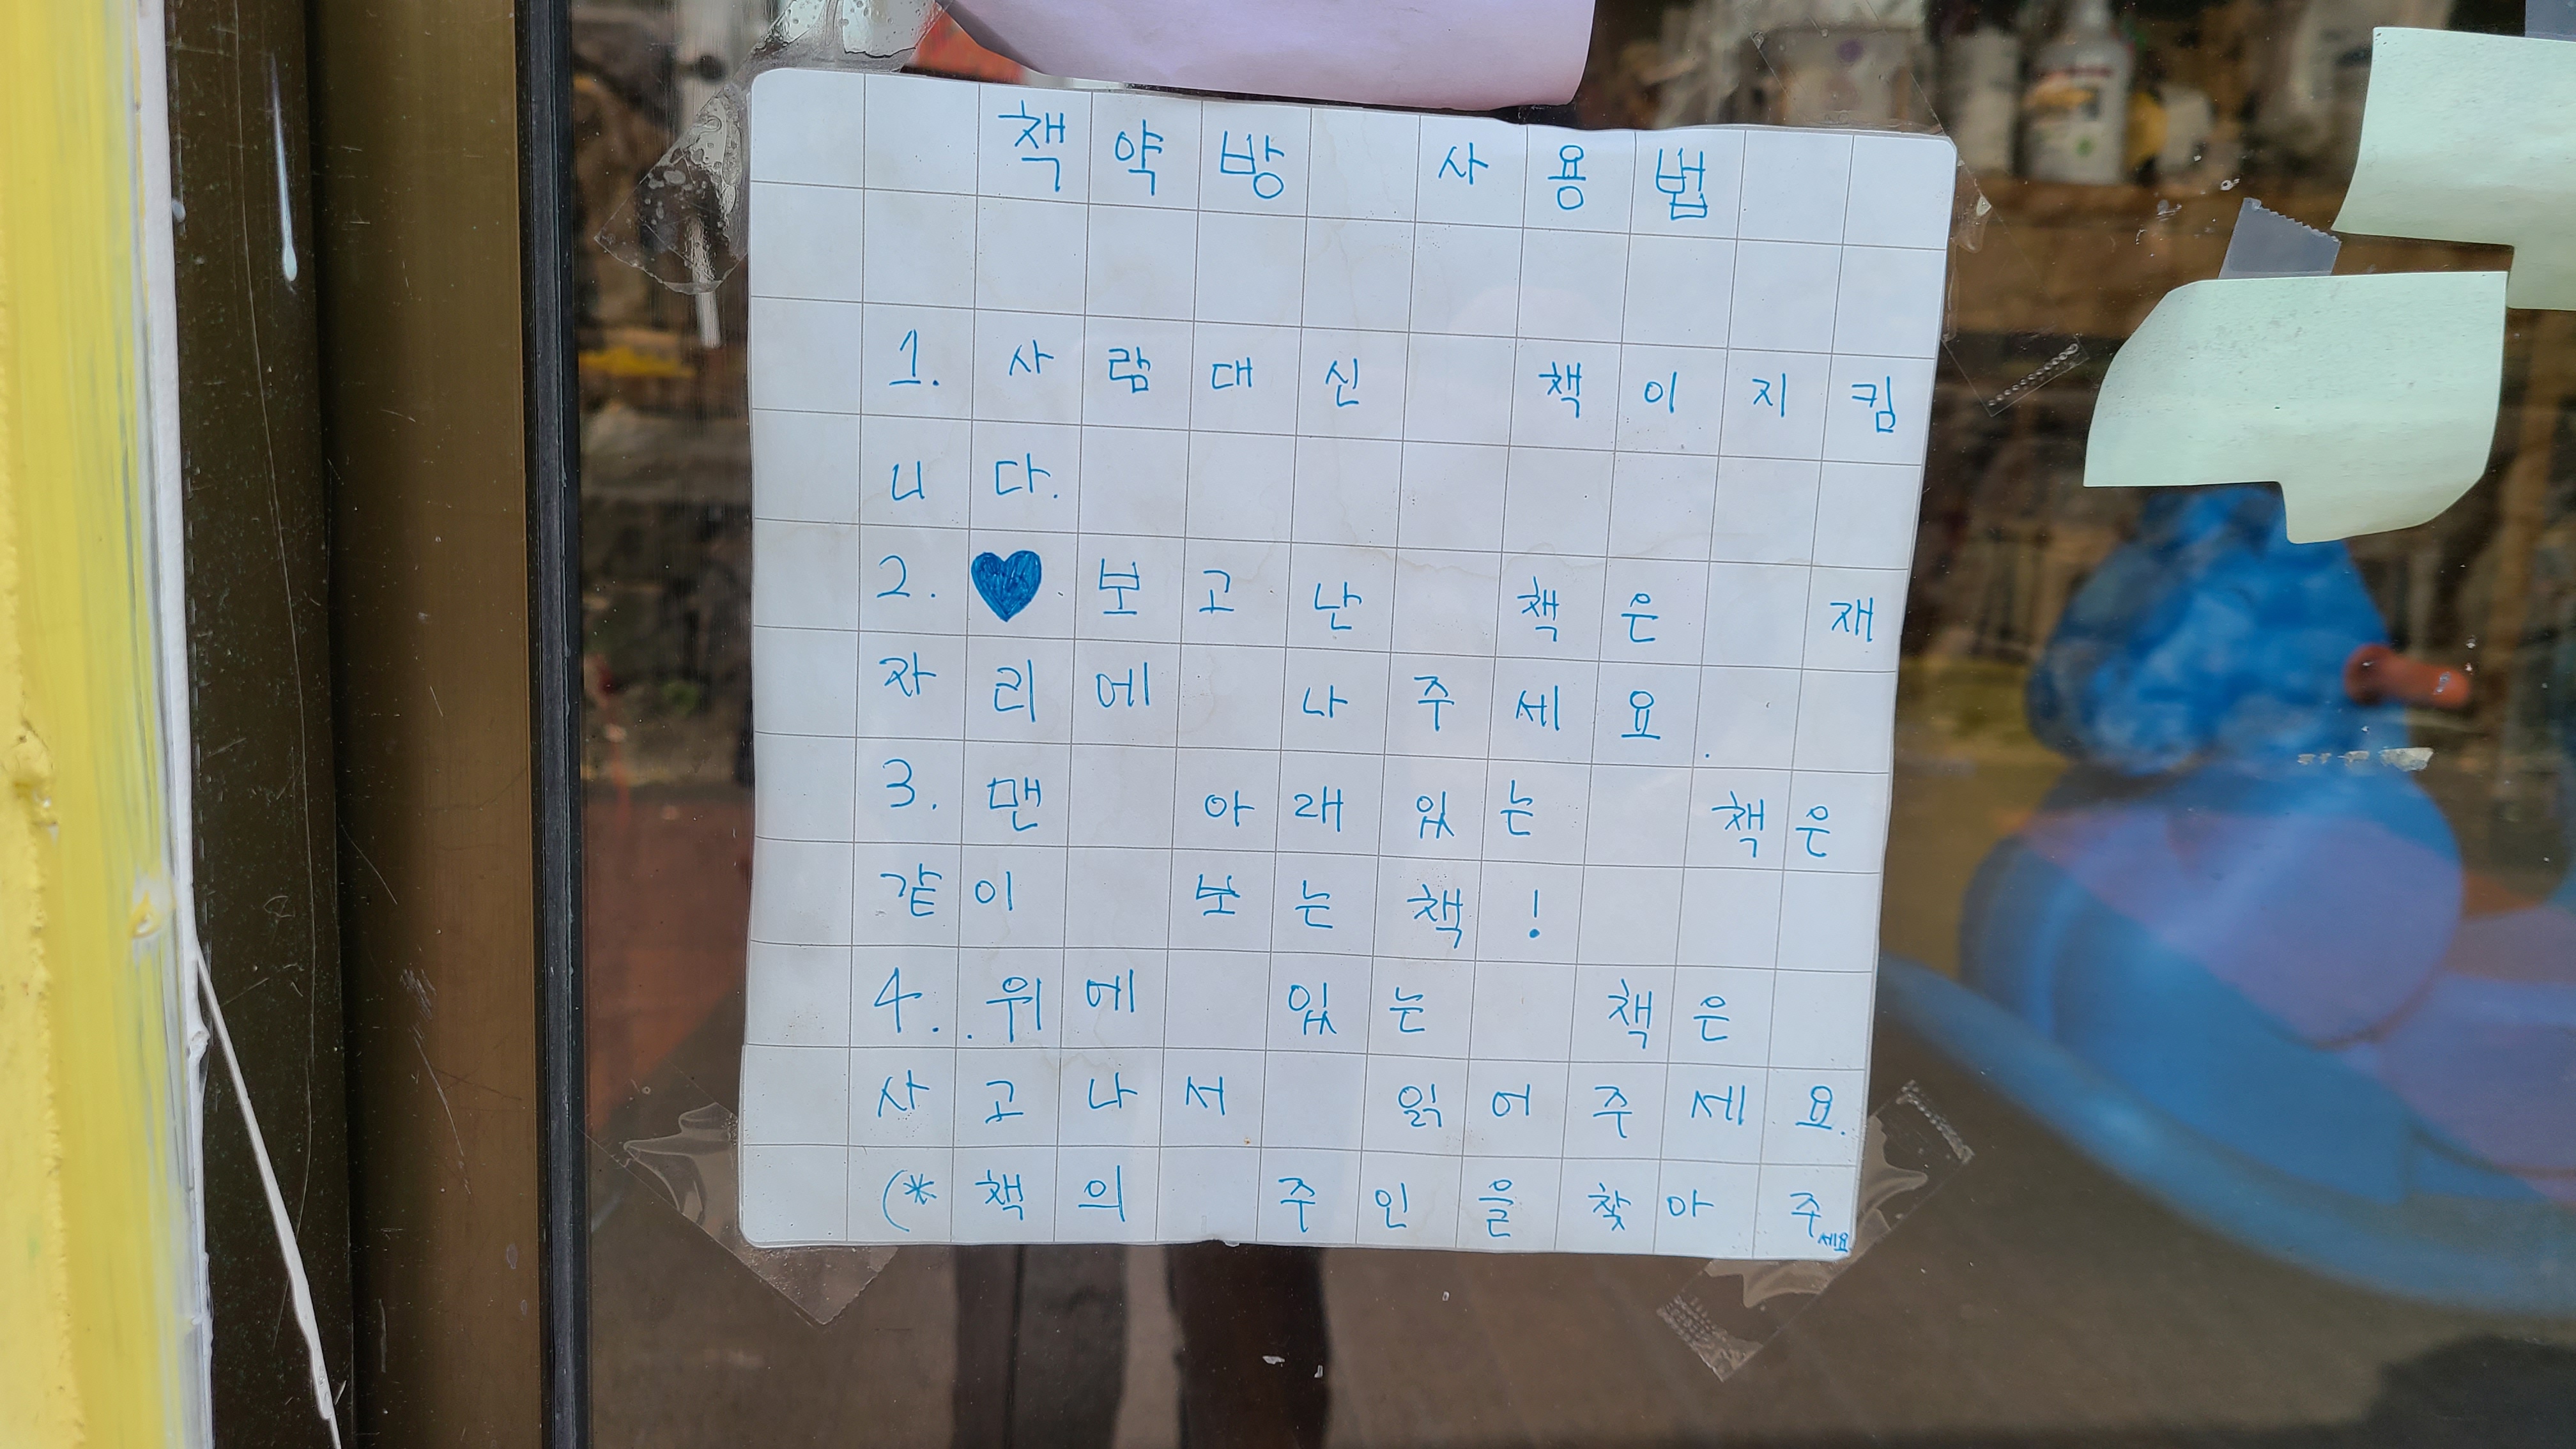 책약방 사용법
1. 사람대신 책이지킴
니다.
2. ♥ 보고난 책은 재
자리에 나주세요.
3. 맨 아래있는 책은
같이 보는책!
4. 위에 있는 책은
사고나서 읽어주세요.
(*책의 주인을찾아 주세요